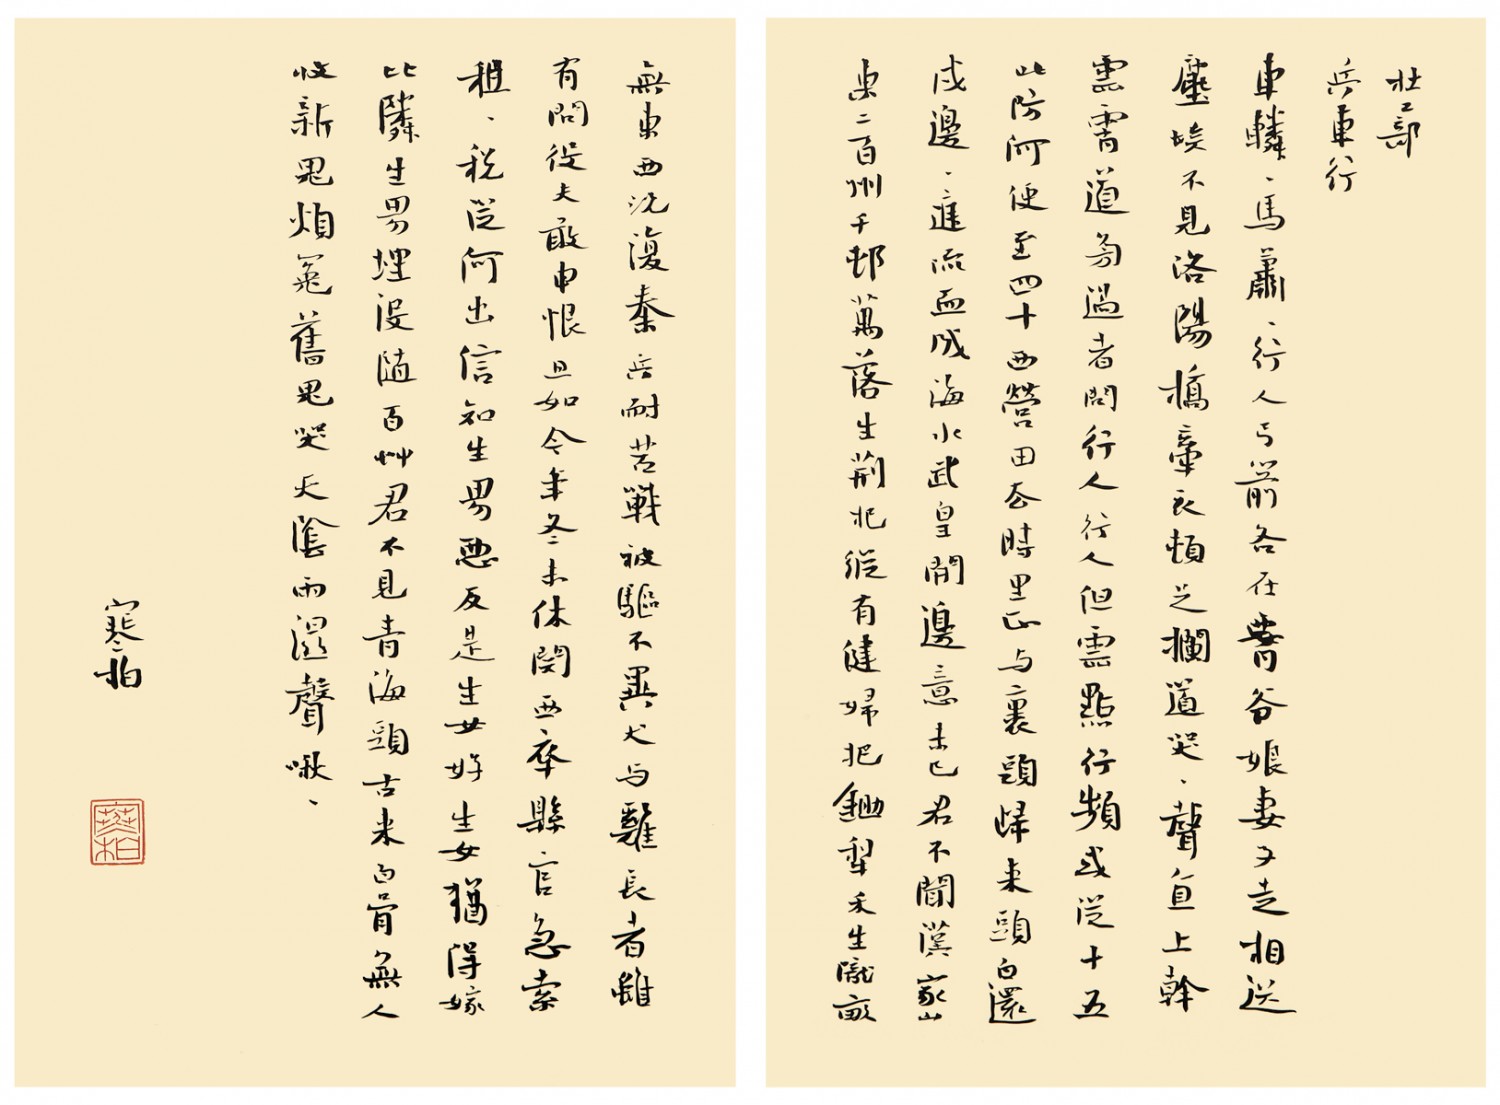 杜工部
兵車行
車轔、馬蕭、行人弓箭各在腰爺娘妻子走相送
塵埃不見洛陽橋牽衣頓足攔道哭、聲直上幹
雲霄道旁過者問行人行人但雲點行頻或從十五
北防河便至四十西營田去時里正与裹頭歸来頭白還
戍邊、庭流血成海水武皇開邊意未已君不聞漢家山
東二百州千邨萬落生荊杞縱有健婦把鋤犁禾生隴畝
無東西況復秦兵耐苦戰被驅不異犬与雞長者雖
有問役夫敢申恨且如今年冬未休関西卒縣官急索
租、稅從何出信知生男惡反是生女好生女猶得嫁
比隣生男埋沒隨百艸君不見青海頭古来白骨無人
收新鬼煩冤舊鬼哭天陰雨濕聲啾、
寒柏
寒柏